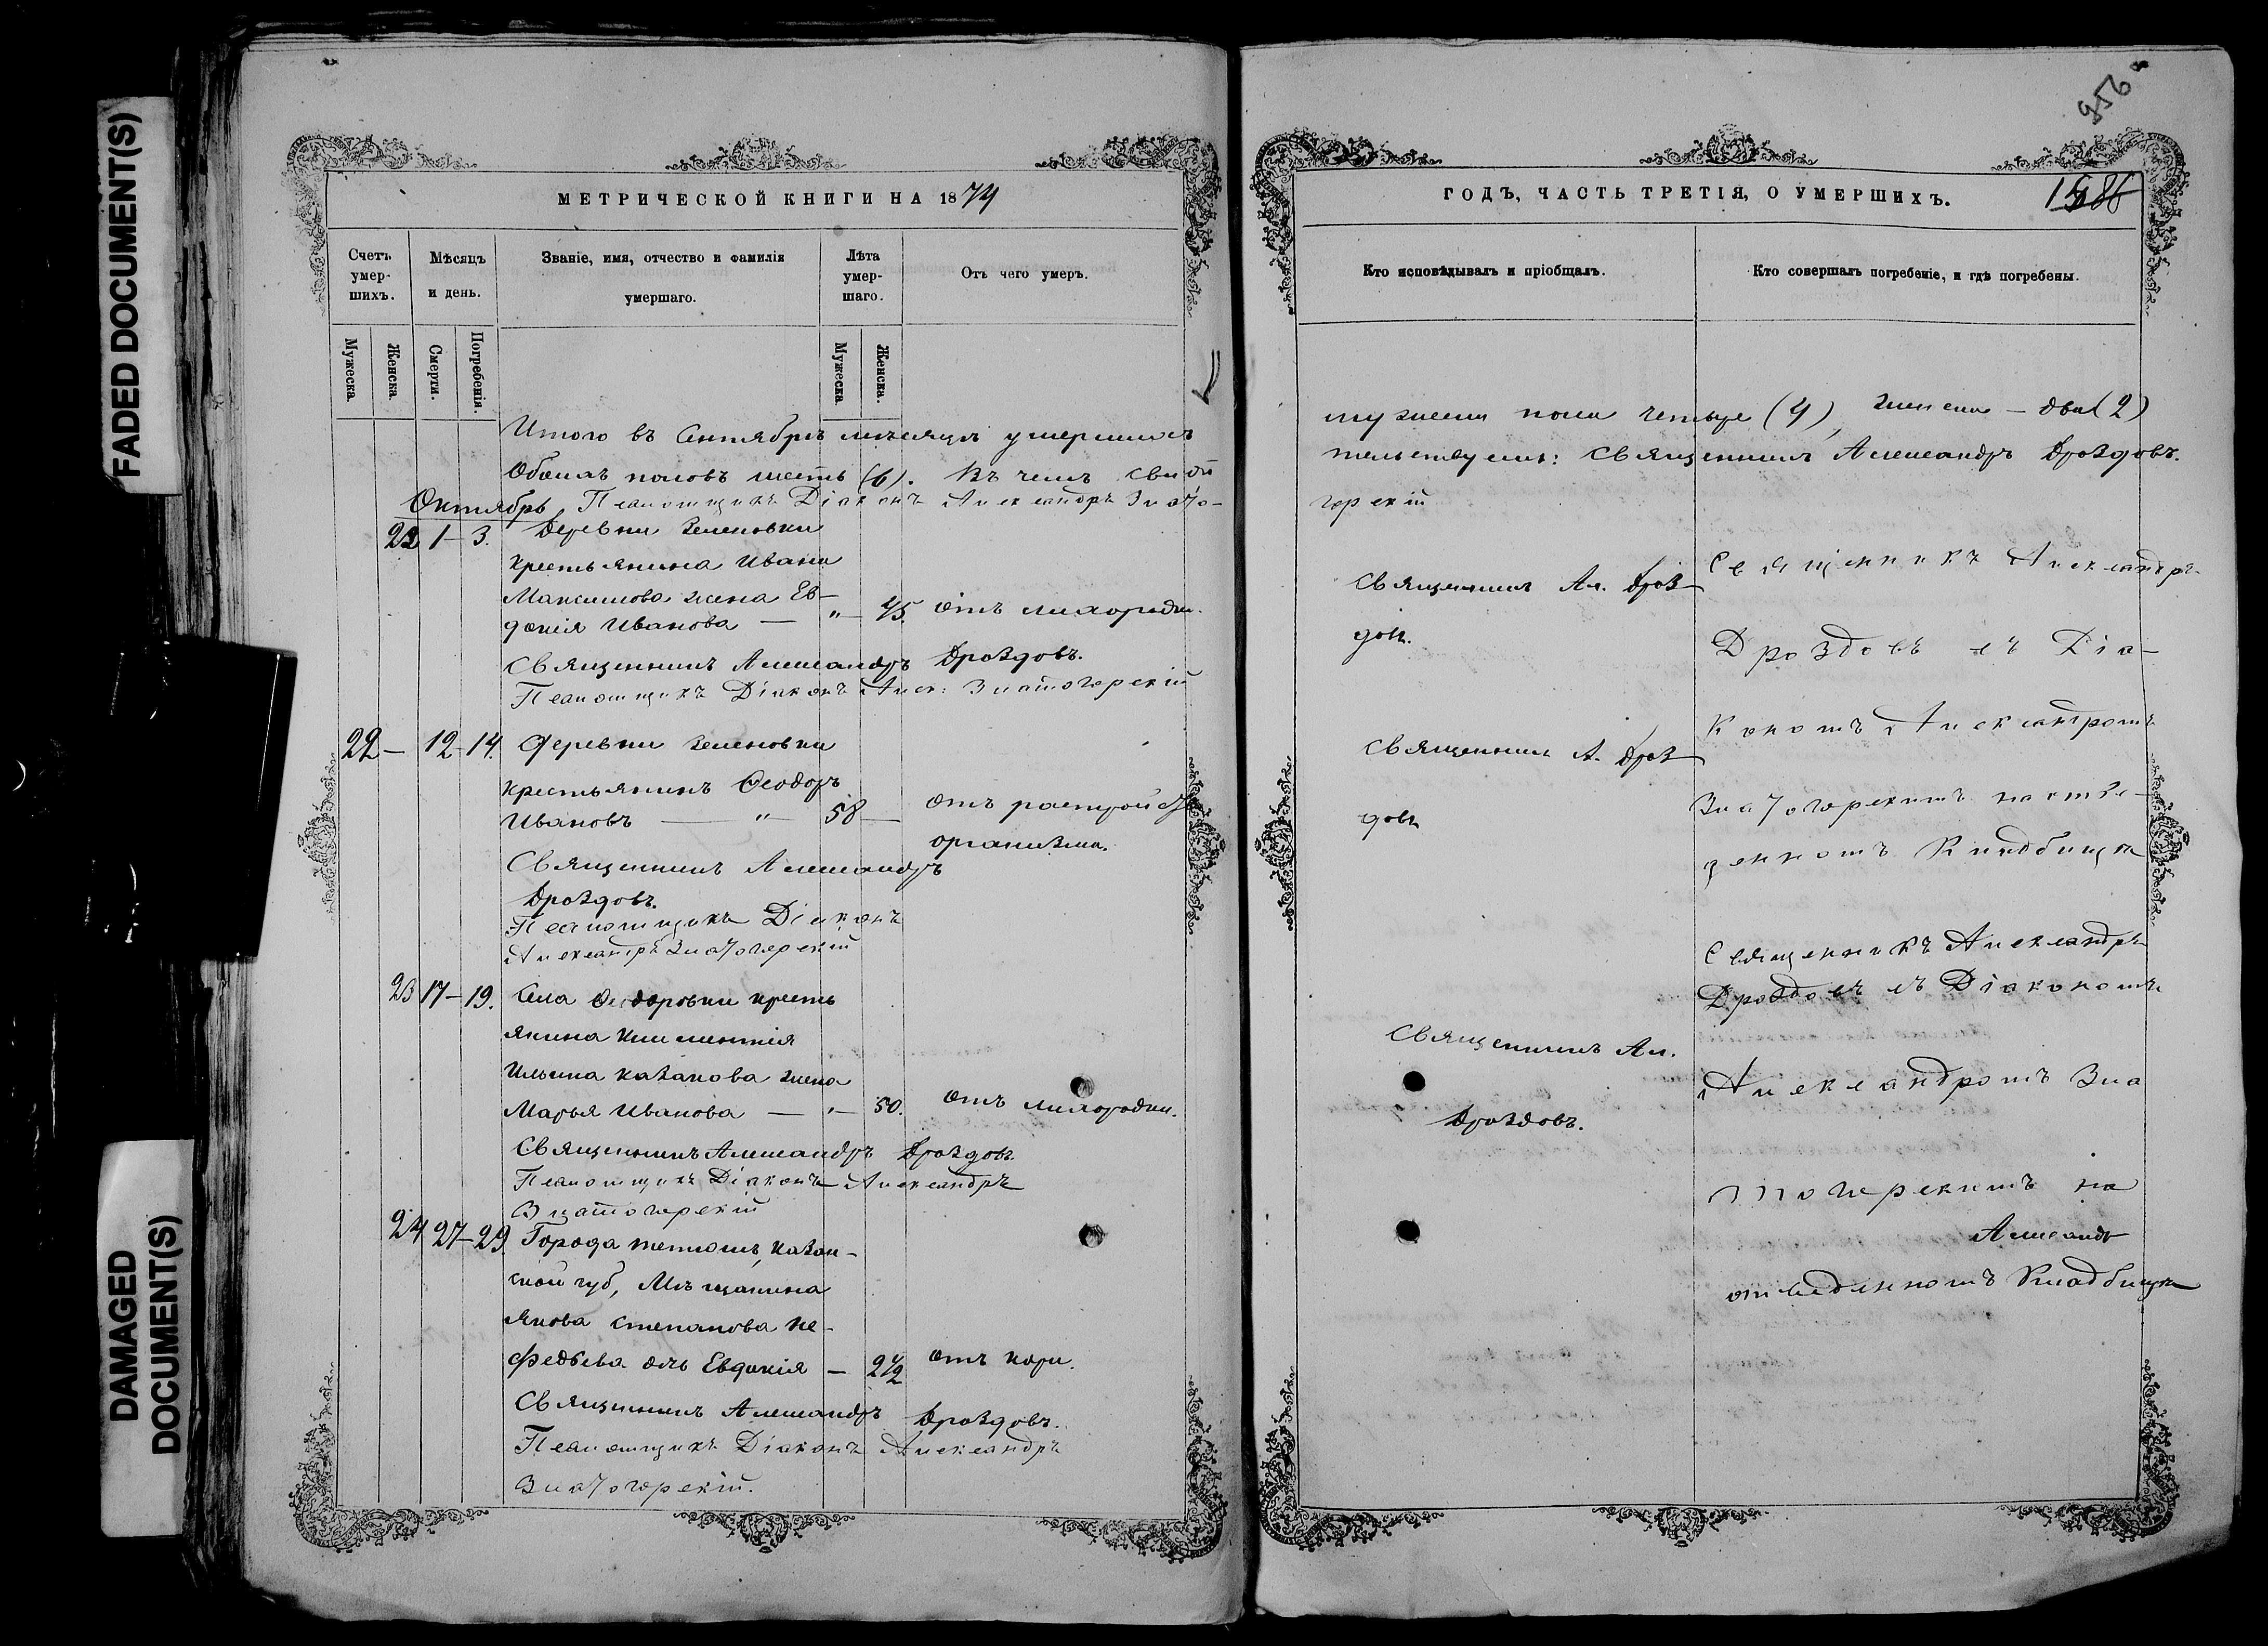 FADED DOCUMENT(S)
DAMAGED
DOCUMENT(S)
МЕТРИЧЕСКОЙ КНИГИ НА 1874
Счетъ
умер-
шихъ.
Мѣсяцъ
и день.
Званіе, имя, отчество и фамилія
умершаго.
Лѣта
умер-
шаго.
Отъ чего умеръ.
Мужеска.
Женска.
Смерти.
Погребенія.
Мужеска.
Женска.
Итого въ Сентябрѣ мѣсяцѣ умершихъ
Обоихъ половъ шесть (6). Въ чемъ свидѣ
Октябрь Псаломщикъ Діаконъ Александръ Злато-
22 1-3. Деревни Зеленовки
крестьянина Ивана
Максимова жена Ев-
докія Иванова — " — 45. отъ лихорадки.
Священникъ Александръ Дроздовъ.
Псаломщикъ Діаконъ Алек: Златогорскій
22 — 12-14. Деревни Зеленовки
крестьянинъ Ѳеодоръ
Ивановъ — " — 58 — отъ разстройства
организма.
Священникъ Александръ
Дроздовъ.
Псаломщикъ Діаконъ
Александръ Златогорскій
23 17-19. Села Ѳедоровки кресть
янина Климентія
Ильина Казакова жена
Марья Иванова — " — 50. Отъ лихорадки.
Священникъ Александръ Дроздовъ.
Псаломщикъ Діаконъ Александръ
Златогорскій
24 27-29. Города Тетюшъ, Казан-
ской губ, Мѣщанина
Якова Степанова Не-
федьева дчь Евдокія — 2½ отъ кори.
Священникъ Александръ Дроздовъ.
Псаломщикъ Діаконъ Александръ
Златогорскій.
956
ГОДЪ, ЧАСТЬ ТРЕТІЯ, О УМЕРШИХЪ.
Кто исповѣдывалъ и пріобщалъ.
Кто совершалъ погребеніе, и гдѣ погребены.
мужеска пола четыре (4), женска — два (2)
тельствуемъ: Священникъ Александръ Дроздовъ.
горскій
Священникъ Ал. Дроз-
довъ.
Священникъ Александръ
Дроздовъ съ Діа-
кономъ Александромъ
Златогорскимъ на отве-
денномъ Кладбищѣ
Священникъ А. Дроз
довъ
Священникъ Александръ
Дроздовъ съ Діакономъ
Александромъ Зла
тогорскимъ на
отведенномъ Кладбищѣ
Священникъ Ал.
Дроздовъ.